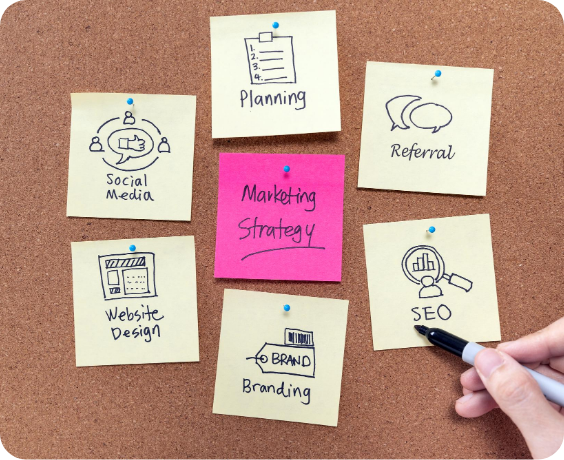 1.
2.
3.
4.
Planning
Referral
Social
Media
Marketing
Strategy
Website
Design
SEO
BRAND
Branding